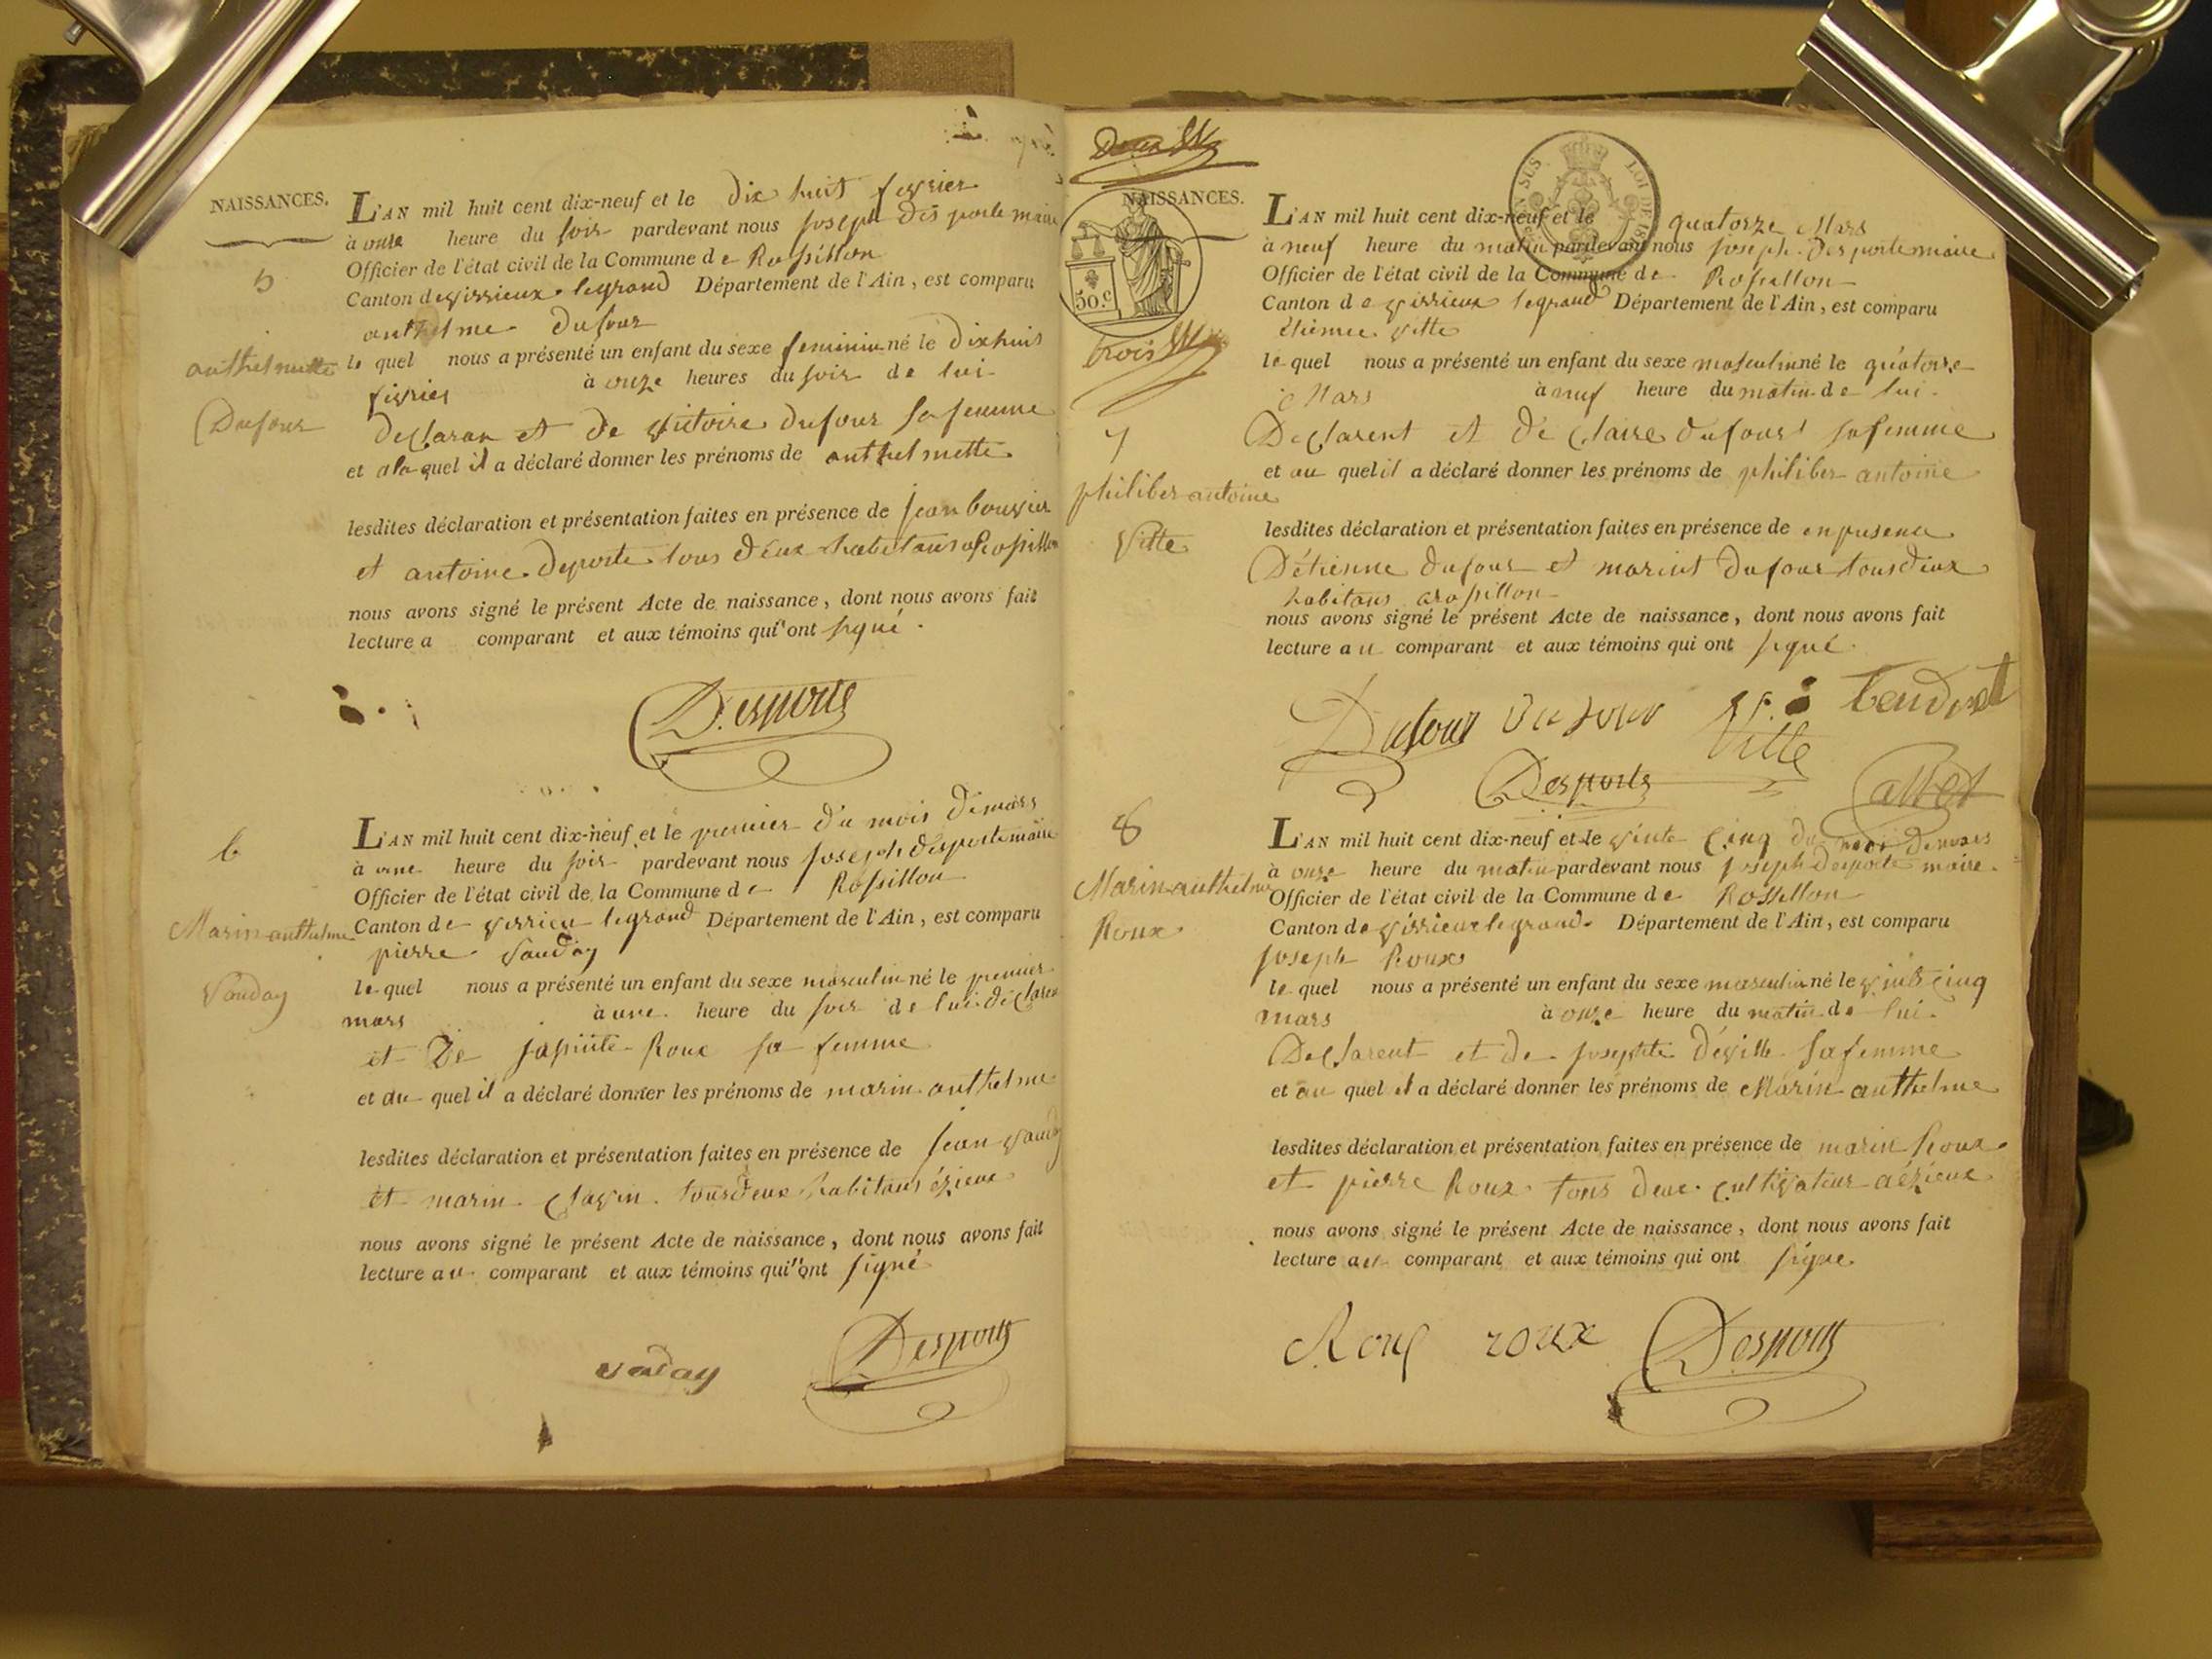 NAISSANCES.
5
anthelmette
Dufour
L'AN mil huit cent dix-neuf et le dix huit fevrier
à onze heure du soir pardevant nous joseph desporte maire
Officier de l'état civil de la Commune de Rossillon
Canton de virrieux legrand Département de l'Ain, est comparu
anthelme dufour
le quel nous a présenté un enfant du sexe feminin né le dixhuit
fevrier à onze heures du soir de lui
declaran et de victoire dufour sa femme
et a la quel il a déclaré donner les prénoms de anthelmette
lesdites déclaration et présentation faites en présence de jean bouvier
et antoine deporte tous deux habitans a Rossillon
nous avons signé le présent Acte de naissance, dont nous avons fait
lecture a comparant et aux témoins qui ont signé.
Desporte
6
Marin anthelme
Vauday
L'AN mil huit cent dix-neuf et le premier du mois demars
à une heure du soir pardevant nous joseph desporte maire
Officier de l'état civil de la Commune de Rossillon
Canton de virrieu legrand Département de l'Ain, est comparu
pierre vauday
le quel nous a présenté un enfant du sexe masculin né le premier
mars à une heure du soir de lui declaren
et de Roux sa femme
et au quel il a déclaré donner les prénoms de marin anthelme
lesdites déclaration et présentation faites en présence de jean vauday
et marin clavin tous deux habitans ézieux
nous avons signé le présent Acte de naissance, dont nous avons fait
lecture au comparant et aux témoins qui ont signé
vaday Desporte
Deux
NAISSANCES.
50.c
trois
7
philiber antoine
Vitte
L'AN mil huit cent dix-neuf et le quatorze Mars
à neuf heure du matin pardevant nous joseph desporte maire
Officier de l'état civil de la Commune de Rossillon
Canton de virrieux legrand Département de l'Ain, est comparu
étienne vitte
le quel nous a présenté un enfant du sexe masculin né le quatorze
Mars à neuf heure du matin de lui
Declarent et de claire dufour sa femme
et au quel il a déclaré donner les prénoms de philiber antoine
lesdites déclaration et présentation faites en présence de en presence
D'étienne dufour et marint dufour tous deux
habitans a rossillon
nous avons signé le présent Acte de naissance, dont nous avons fait
lecture au comparant et aux témoins qui ont signé
Dufour Dufour Vitte Tendret
Desporte Callet
8
Marin anthelme
Roux
L'AN mil huit cent dix-neuf et le vinte cinq du mois demars
à onze heure du matin pardevant nous joseph desporte maire
Officier de l'état civil de la Commune de Rossellon
Canton de virrieux legrand Département de l'Ain, est comparu
joseph Roux
le quel nous a présenté un enfant du sexe masculin né le vinte cinq
mars à onze heure du matin de lui
Declarent et de josephte déville sa femme
et au quel il a déclaré donner les prénoms de Marin anthelme
lesdites déclaration et présentation faites en présence de marin Roux
et pierre Roux tous deux cultivateur aézieux
nous avons signé le présent Acte de naissance, dont nous avons fait
lecture au comparant et aux témoins qui ont signe
Roux roux Desporte